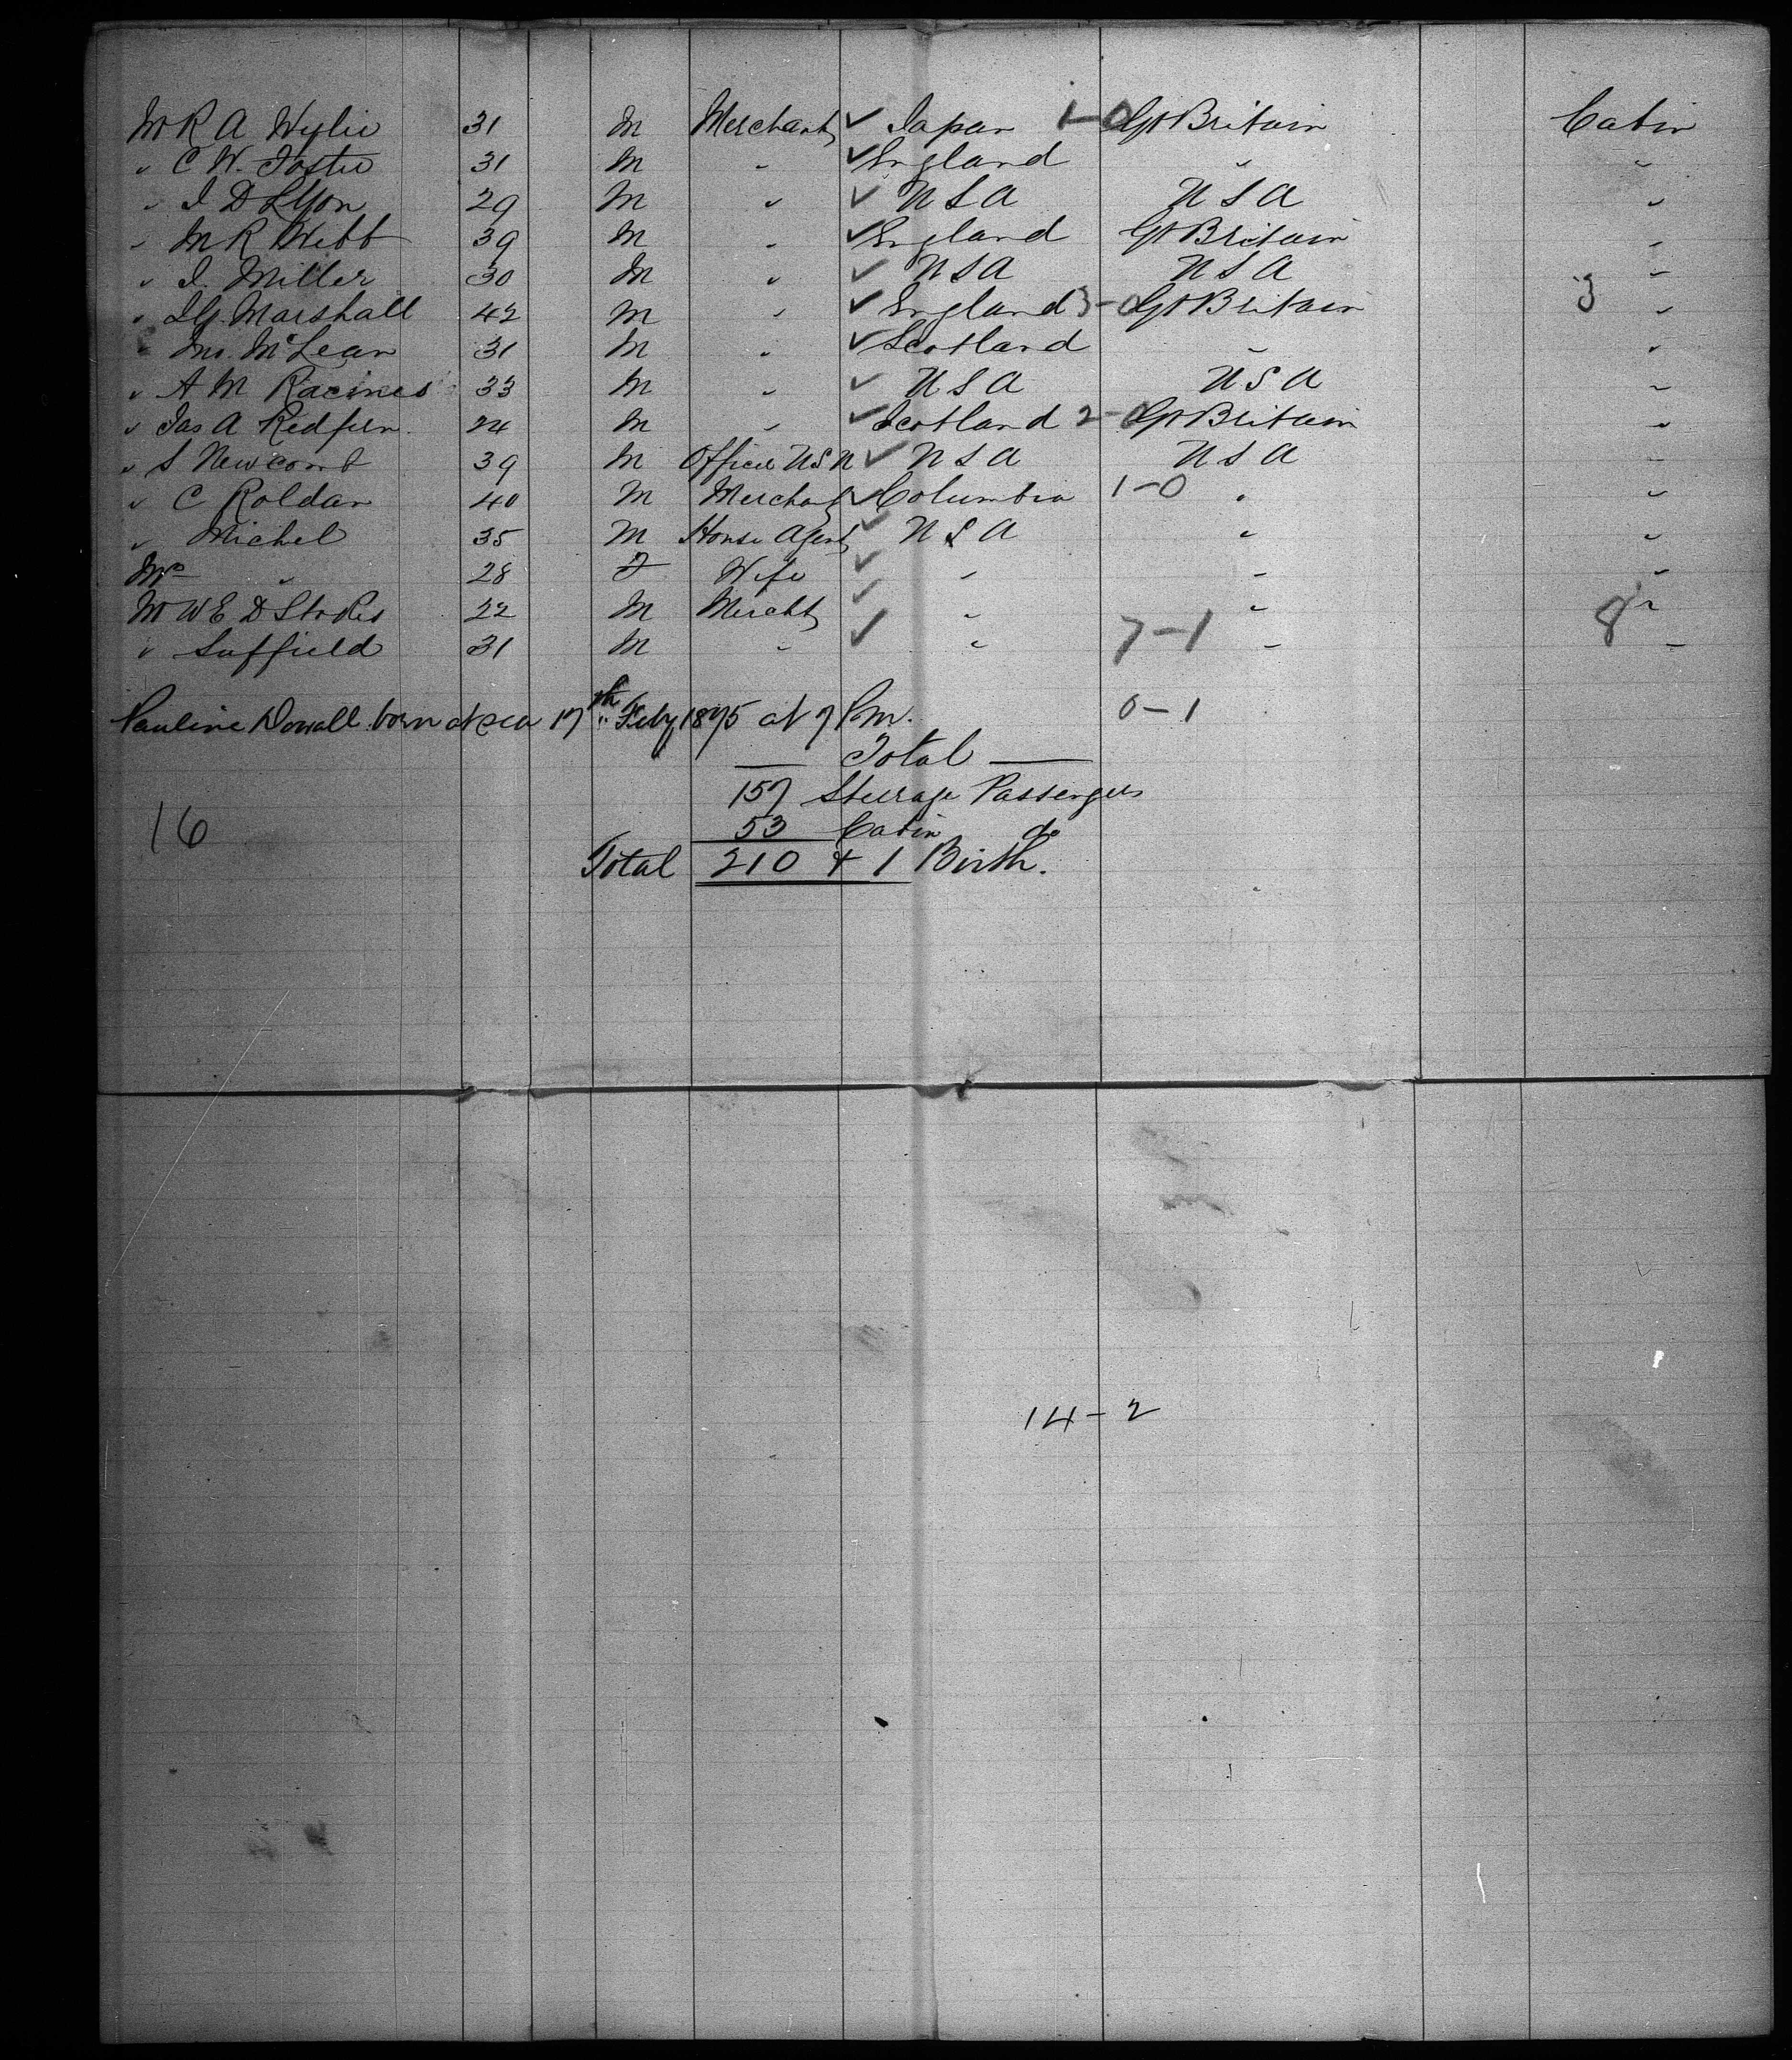 Mr R A Wylie 31 M Merchant ✓ Japan 1-0 Gt Britain Cabin
" C W. Foster 31 M " ✓ England " "
" I D Lyon 29 M " ✓ USA USA "
" M R Webb 39 M " ✓ England Gt Britain "
" I. Miller 30 M " ✓ USA USA "
" Marshall 42 M " ✓ England 3-0 Gt Britain 3 "
" Jno. McLean 31 M " ✓ Scotland " "
" A M Racines 33 M " ✓ USA USA "
" Jas A Redfern 24 M " ✓ Scotland 2-0 Gt Britain "
" S Newcomb 39 M Officer USN ✓ USA USA "
" C Roldan 40 M Merchat ✓ Columbia 1-0 " "
" Michel 35 M House Agent ✓ USA " "
Mrs " 28 F Wife ✓ " " "
Mr W E D Stokes 22 M Mercht ✓ " " 8 "
" Suffield 31 M " ✓ " 7-1 " "
Pauline born at sea 17th Feby 1875 at 7 Pm. 0-1
— Total —
157 Steerage Passengers
16 53 Cabin do
Total 210 + 1 Birth.
14-2